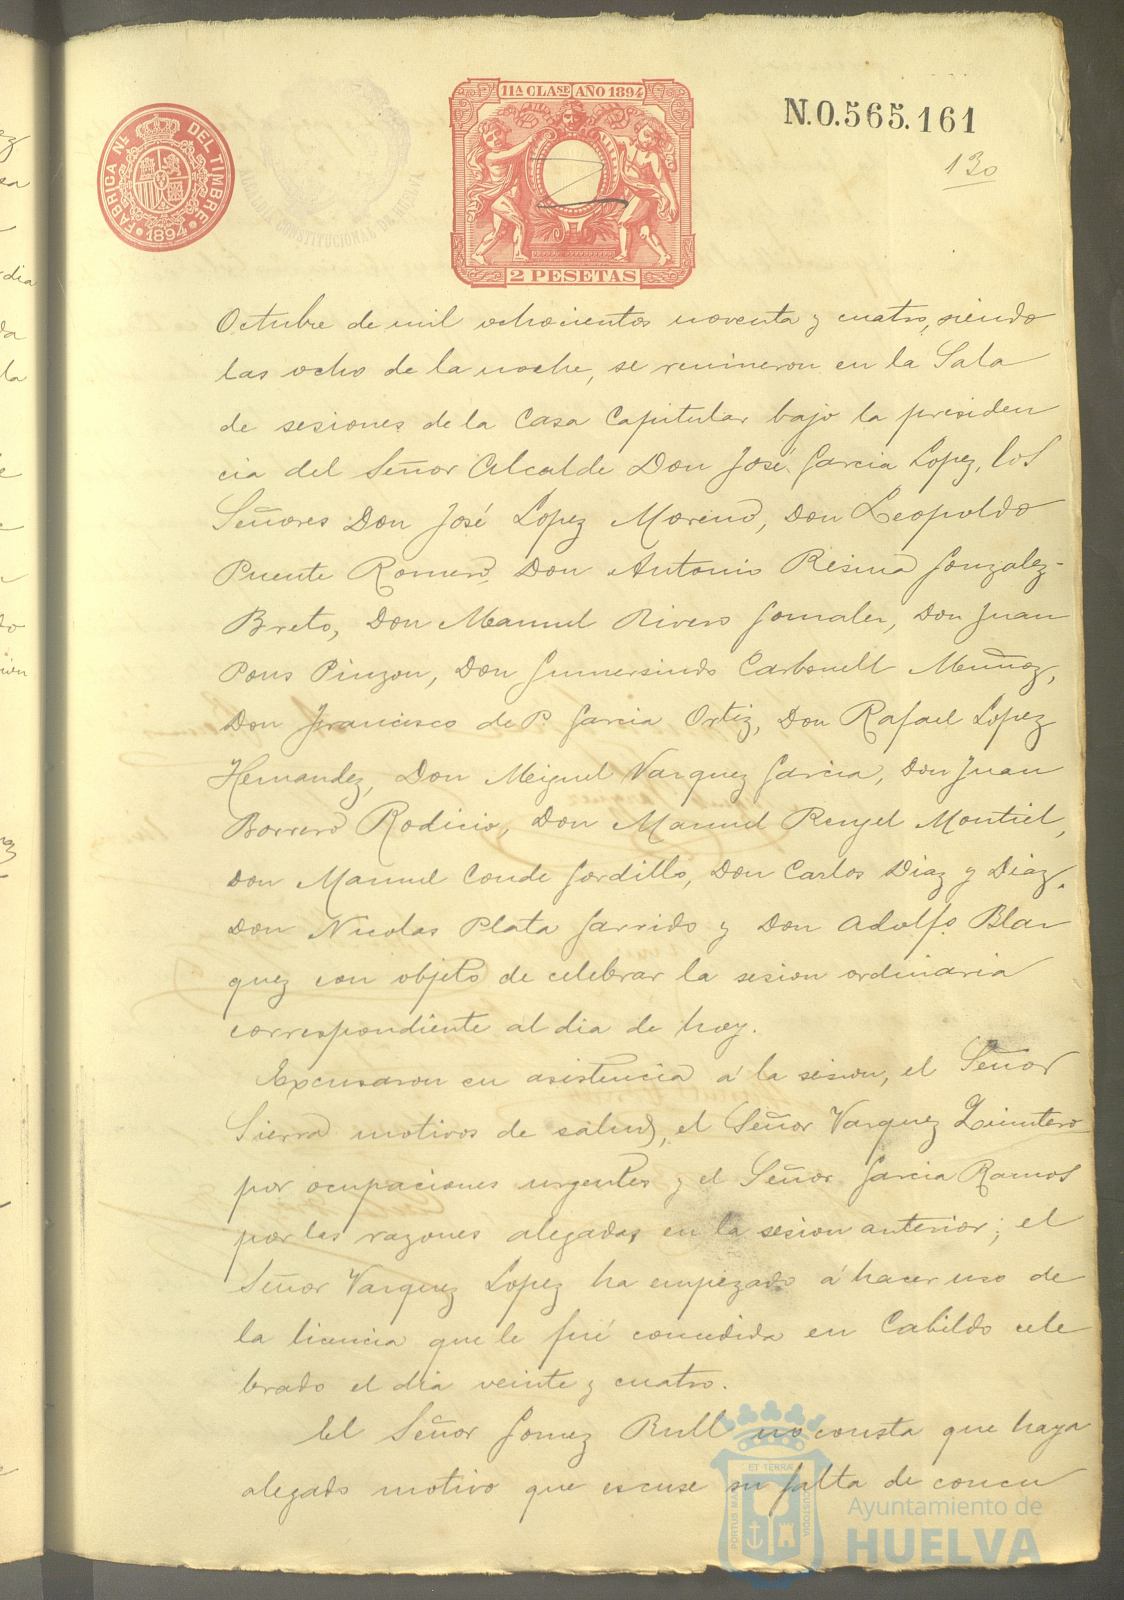 11ª CLASE AÑO 1894
N.0.565.161
130
FABRICA Nᴸ DEL TIMBRE
1894
ALCALDIA CONSTITUCIONAL DE HUELVA
2 PESETAS
Octubre de mil ochocientos noventa y cuatro, siendo
las ocho de la noche, se reunieron en la Sala
de sesiones de la Casa Capitular bajo la presiden
cia del Señor Alcalde Don José Garcia Lopez, los
Señores Don José Lopez Moreno, Don Leopoldo
Puente Romero, Don Antonio Resina Gonzalez-
Breto, Don Manuel Rivero Gonzalez, Don Juan
Pons Pinzon, Don Gumersindo Carbonell Muñoz,
Don Francisco de P. Garcia Ortiz, Don Rafael Lopez
Hernandez, Don Miguel Vazquez Garcia, Don Juan
Borrero Rodicio, Don Manuel Rengel Montiel,
Don Manuel Conde Gordillo, Don Carlos Diaz y Diaz,
Don Nicolas Plata Garrido y Don Adolfo Blaz
quez con objeto de celebrar la sesion ordinaria
correspondiente al dia de hoy.
Excusaron su asistencia á la sesion, el Señor
Sierra motivos de salud, el Señor Vazquez Quintero
por ocupaciones urgentes y el Señor Garcia Ramos
por las razones alegadas en la sesion anterior; el
Señor Vazquez Lopez ha empezado á hacer uso de
la licencia que le fué concedida en Cabildo cele
brado el dia veinte y cuatro.
El Señor Gomez Rull no consta que haya
alegado motivo que escuse su falta de concu
PORTUS MARIS ET TERRÆ CUSTODIA
Ayuntamiento de
HUELVA